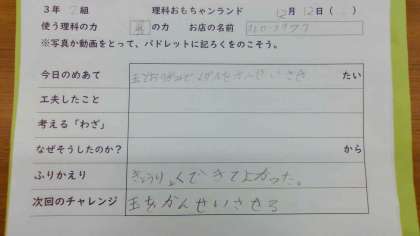 ３年 2組　理科おもちゃランド　12月12日（　）
使う理科の力　の力　お店の名前
※写真か動画をとって、パドレットに記ろくをのこそう。
今日のめあて　たい
工夫したこと
考える「わざ」
なぜそうしたのか？　から
ふりかえり　きょうりょくできてよかった。
次回のチャレンジ　玉をかんせいさせる